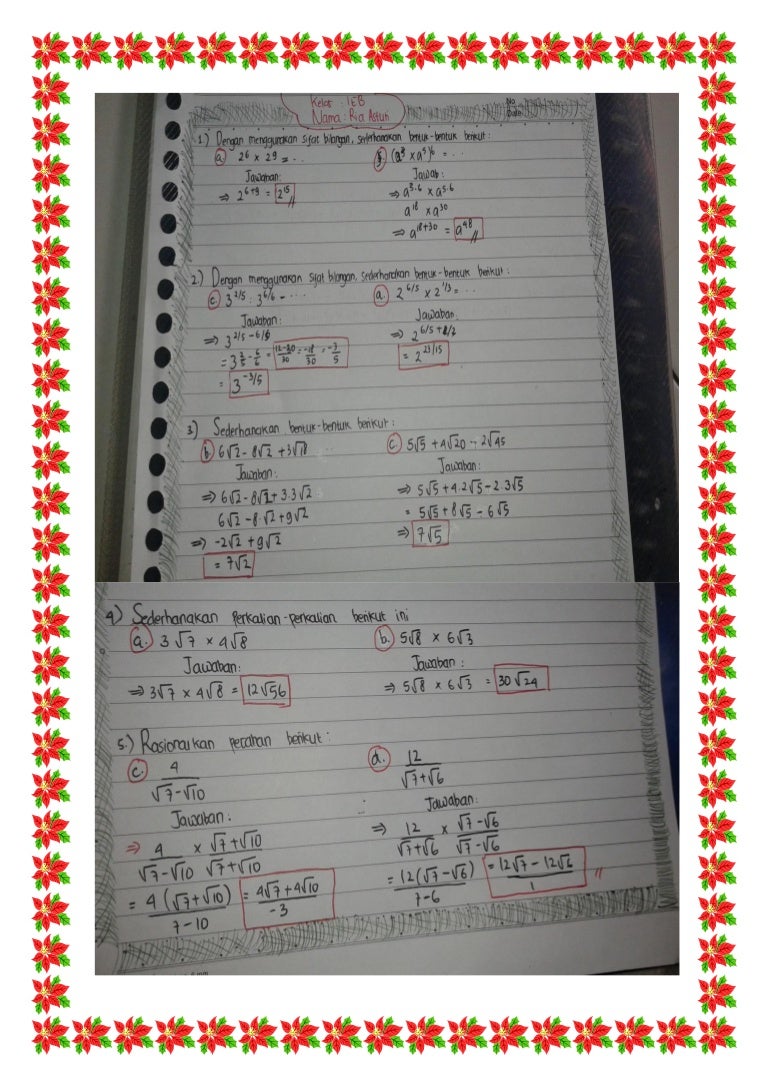 Kelas : 1EB
Nama : Ria Astuti
No
Date
1) Dengan menggunakan sifat bilangan, sederhanakan bentuk-bentuk berikut :
a. 2^6 × 2^9 = ...
Jawaban:
⇒ 2^(6+9) = 2^15
(a^3 × a^5)^6 = ...
Jawab :
⇒ a^(3.6) × a^(5.6)
a^18 × a^30
⇒ a^(18+30) = a^48
2) Dengan menggunakan sifat bilangan, sederhanakan bentuk-bentuk berikut :
c. 3^(2/5) : 3^(6/6) = ...
Jawaban:
⇒ 3^(2/5 - 6/6)
= 3^(2/5 - 6/6) = (12-30)/30 = -18/30 = -3/5
= 3^(-3/5)
a. 2^(6/5) × 2^(1/3) = ...
Jawaban:
⇒ 2^(6/5 + 1/3)
= 2^(23/15)
3) Sederhanakan bentuk-bentuk berikut :
b. 6√2 - 8√2 + 3√18
Jawaban:
⇒ 6√2 - 8√2 + 3.3√2
6√2 - 8√2 + 9√2
⇒ -2√2 + 9√2
= 7√2
c. 5√5 + 4√20 - 2√45
Jawaban:
⇒ 5√5 + 4.2√5 - 2.3√5
= 5√5 + 8√5 - 6√5
⇒ 7√5
4) Sederhanakan perkalian-perkalian berikut ini
a. 3√7 × 4√8
Jawaban:
⇒ 3√7 × 4√8 = 12√56
b. 5√8 × 6√3
Jawaban :
⇒ 5√8 × 6√3 = 30√24
5.) Rasionalkan pecahan berikut :
c. 4/(√7-√10)
Jawaban:
⇒ 4/(√7-√10) × (√7+√10)/(√7+√10)
= 4(√7+√10)/(7-10) = (4√7+4√10)/-3
d. 12/(√7+√6)
Jawaban:
⇒ 12/(√7+√6) × (√7-√6)/(√7-√6)
= 12(√7-√6)/(7-6) = (12√7-12√6)/1